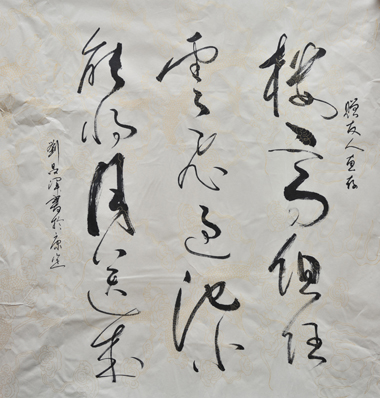 贈友人惠存
樓高但任
雲飛過池小
能將月送來
劉書於康定